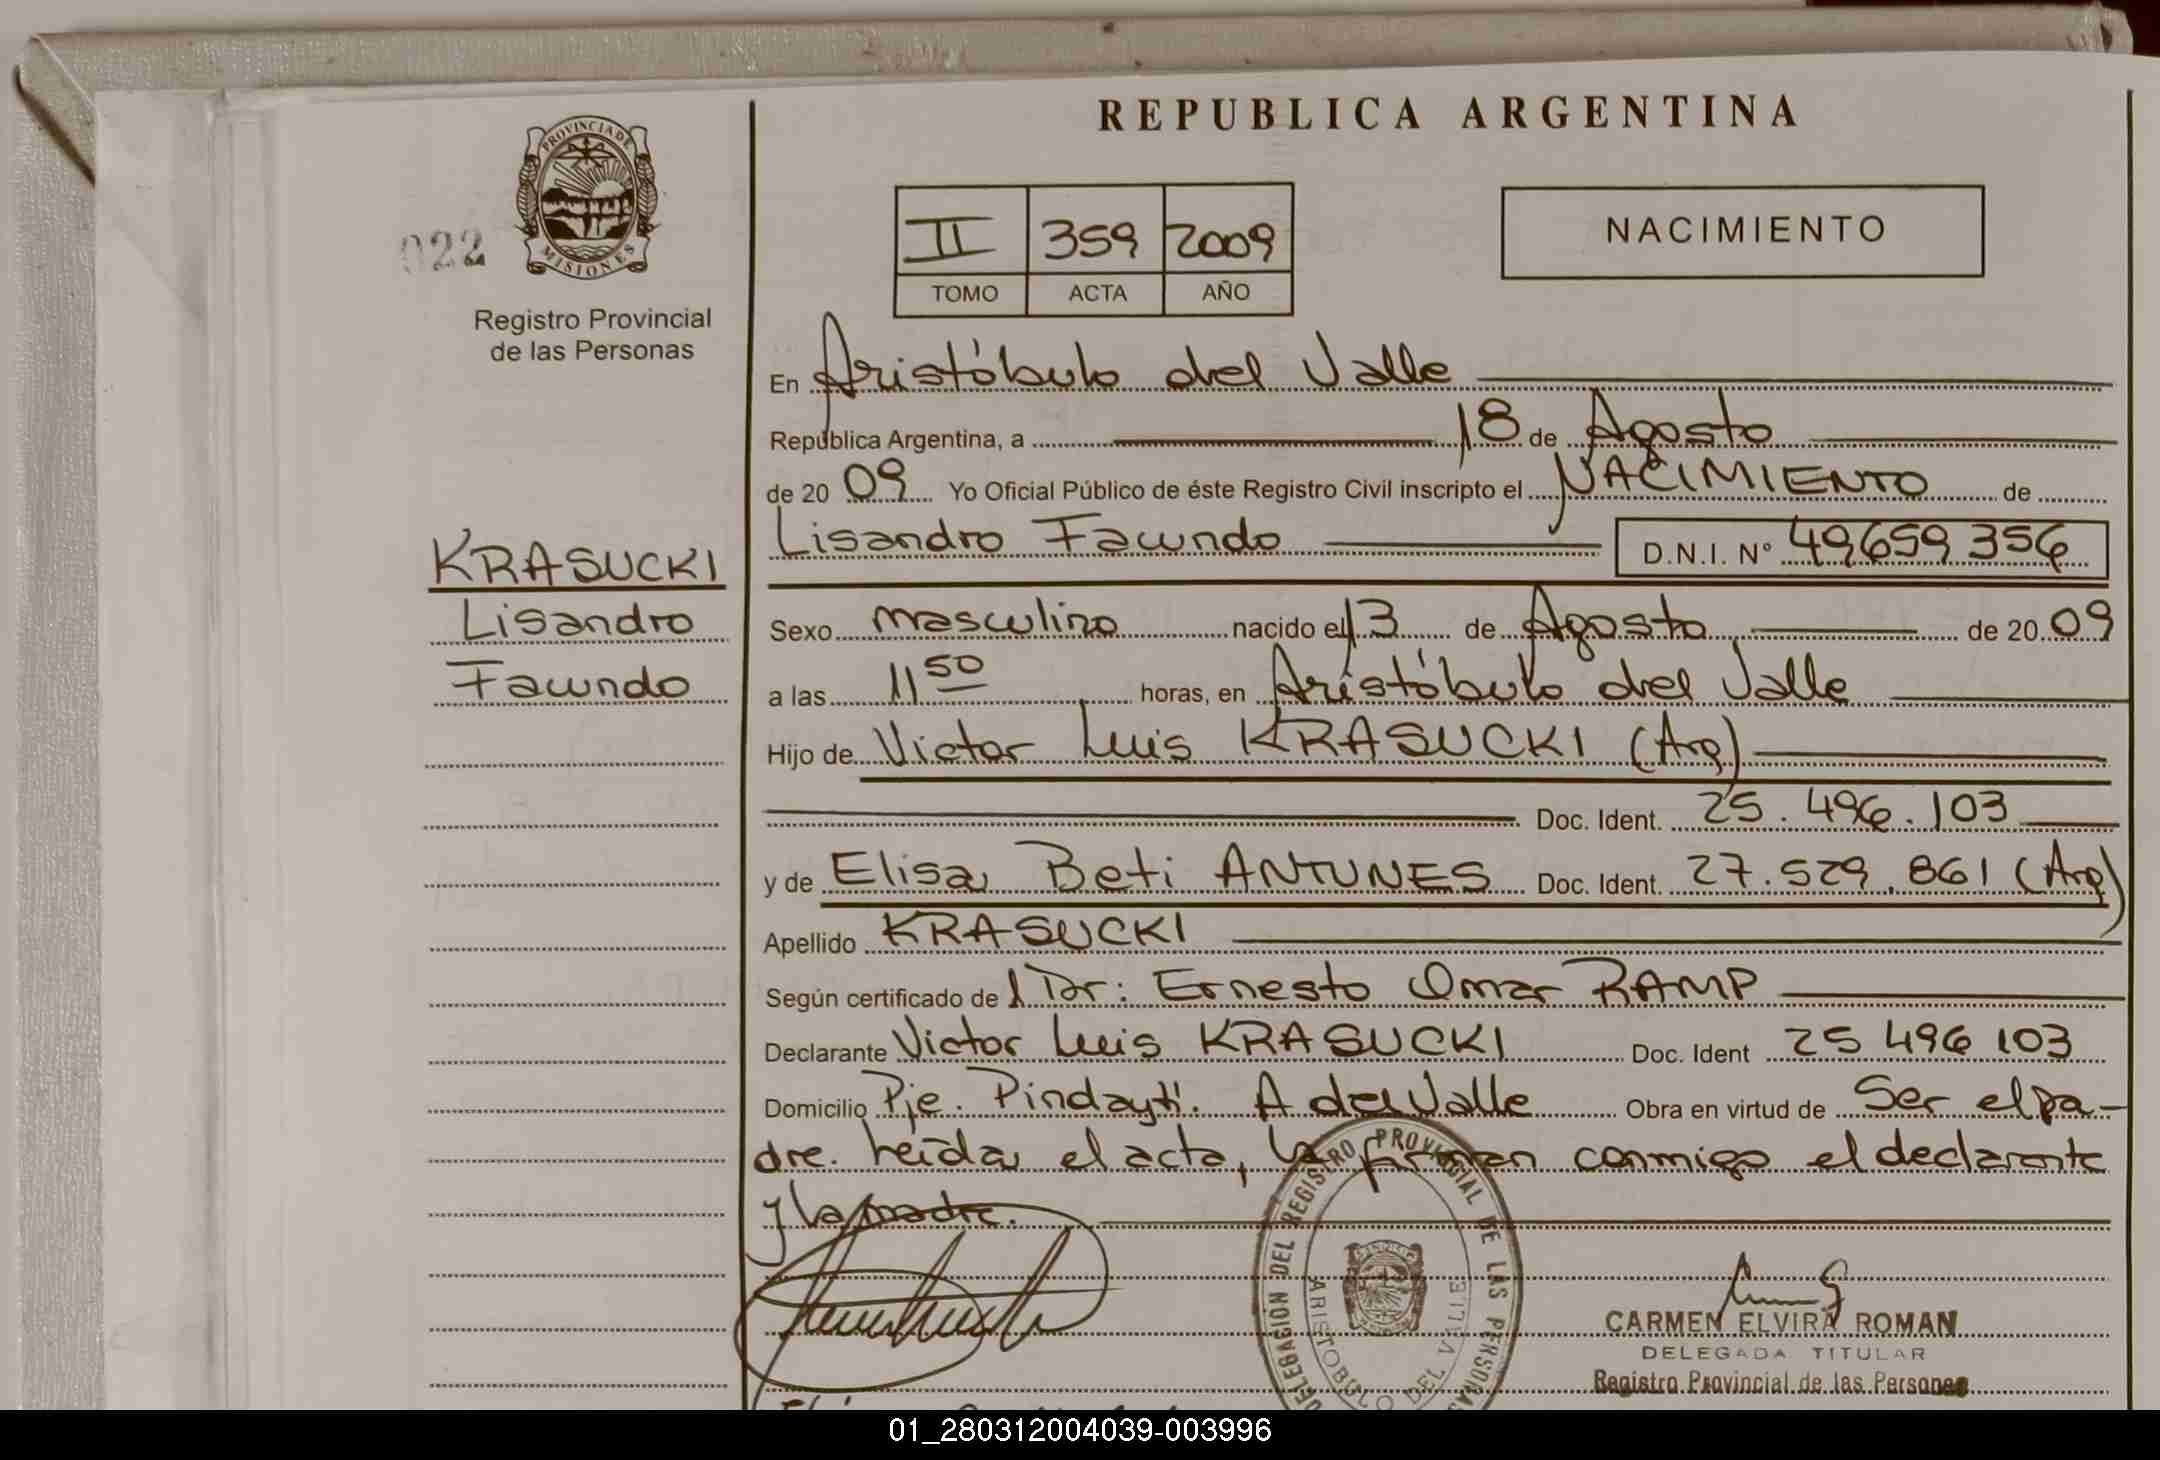 REPUBLICA ARGENTINA
PROVINCIA DE
MISIONES
022
Registro Provincial
de las Personas
II 359 2009
TOMO ACTA AÑO
NACIMIENTO
En Aristóbulo del Valle
República Argentina, a 18 de Agosto
de 20 09 Yo Oficial Público de éste Registro Civil inscripto el NACIMIENTO de
Lisandro Facundo D.N.I. N° 49659356
KRASUCKI
Lisandro
Facundo
Sexo masculino nacido el 13 de Agosto de 20 09
a las 11 50 horas, en Aristóbulo del Valle
Hijo de Victor Luis KRASUCKI (Arg)
Doc. Ident. 25.496.103
y de Elisa Beti ANTUNES Doc. Ident. 27.529.861 (Arg)
Apellido KRASUCKI
Según certificado de 1 Dr: Ernesto Omar RAMP
Declarante Victor Luis KRASUCKI Doc. Ident 25 496 103
Domicilio Pje. Pindaytí. A del Valle Obra en virtud de Ser el pa-
dre. Leída el acta, la firman conmigo el declarante
y la madre.
DELEGACION DEL REGISTRO PROVINCIAL DE LAS PERSONAS
ARISTOBULO DEL VALLE
CARMEN ELVIRA ROMAN
DELEGADA TITULAR
Registro Provincial de las Personas
01_280312004039-003996